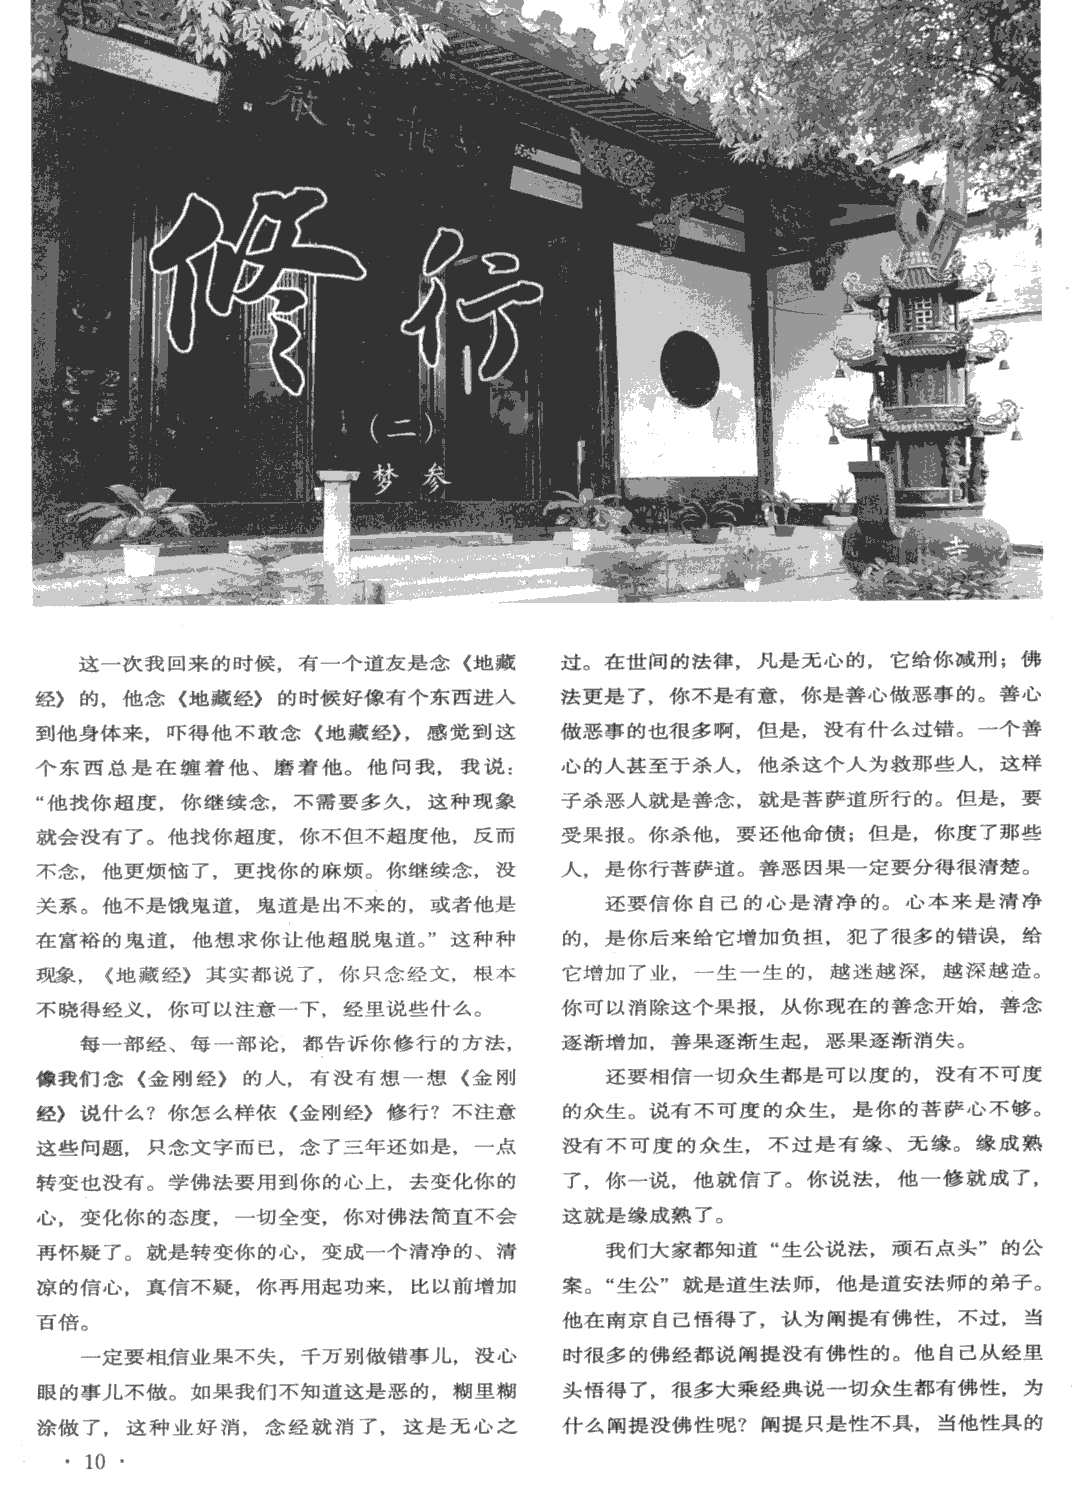 修行
（二）
梦参
寺
这一次我回来的时候，有一个道友是念《地藏
经》的，他念《地藏经》的时候好像有个东西进入
到他身体来，吓得他不敢念《地藏经》，感觉到这
个东西总是在缠着他、磨着他。他问我，我说：
“他找你超度，你继续念，不需要多久，这种现象
就会没有了。他找你超度，你不但不超度他，反而
不念，他更烦恼了，更找你的麻烦。你继续念，没
关系。他不是饿鬼道，鬼道是出不来的，或者他是
在富裕的鬼道，他想求你让他超脱鬼道。”这种种
现象，《地藏经》其实都说了，你只念经文，根本
不晓得经义，你可以注意一下，经里说些什么。
每一部经、每一部论，都告诉你修行的方法，
像我们念《金刚经》的人，有没有想一想《金刚
经》说什么？你怎么样依《金刚经》修行？不注意
这些问题，只念文字而已，念了三年还如是，一点
转变也没有。学佛法要用到你的心上，去变化你的
心，变化你的态度，一切全变，你对佛法简直不会
再怀疑了。就是转变你的心，变成一个清净的、清
凉的信心，真信不疑，你再用起功来，比以前增加
百倍。
一定要相信业果不失，千万别做错事儿，没心
眼的事儿不做。如果我们不知道这是恶的，糊里糊
涂做了，这种业好消，念经就消了，这是无心之
过。在世间的法律，凡是无心的，它给你减刑；佛
法更是了，你不是有意，你是善心做恶事的。善心
做恶事的也很多啊，但是，没有什么过错。一个善
心的人甚至于杀人，他杀这个人为救那些人，这样
子杀恶人就是善念，就是菩萨道所行的。但是，要
受果报。你杀他，要还他命债；但是，你度了那些
人，是你行菩萨道。善恶因果一定要分得很清楚。
还要信你自己的心是清净的。心本来是清净
的，是你后来给它增加负担，犯了很多的错误，给
它增加了业，一生一生的，越迷越深，越深越造。
你可以消除这个果报，从你现在的善念开始，善念
逐渐增加，善果逐渐生起，恶果逐渐消失。
还要相信一切众生都是可以度的，没有不可度
的众生。说有不可度的众生，是你的菩萨心不够。
没有不可度的众生，不过是有缘、无缘。缘成熟
了，你一说，他就信了。你说法，他一修就成了，
这就是缘成熟了。
我们大家都知道“生公说法，顽石点头”的公
案。“生公”就是道生法师，他是道安法师的弟子。
他在南京自己悟得了，认为阐提有佛性，不过，当
时很多的佛经都说阐提没有佛性的。他自己从经里
头悟得了，很多大乘经典说一切众生都有佛性，为
什么阐提没佛性呢？阐提只是性不具，当他性具的
· 10 ·